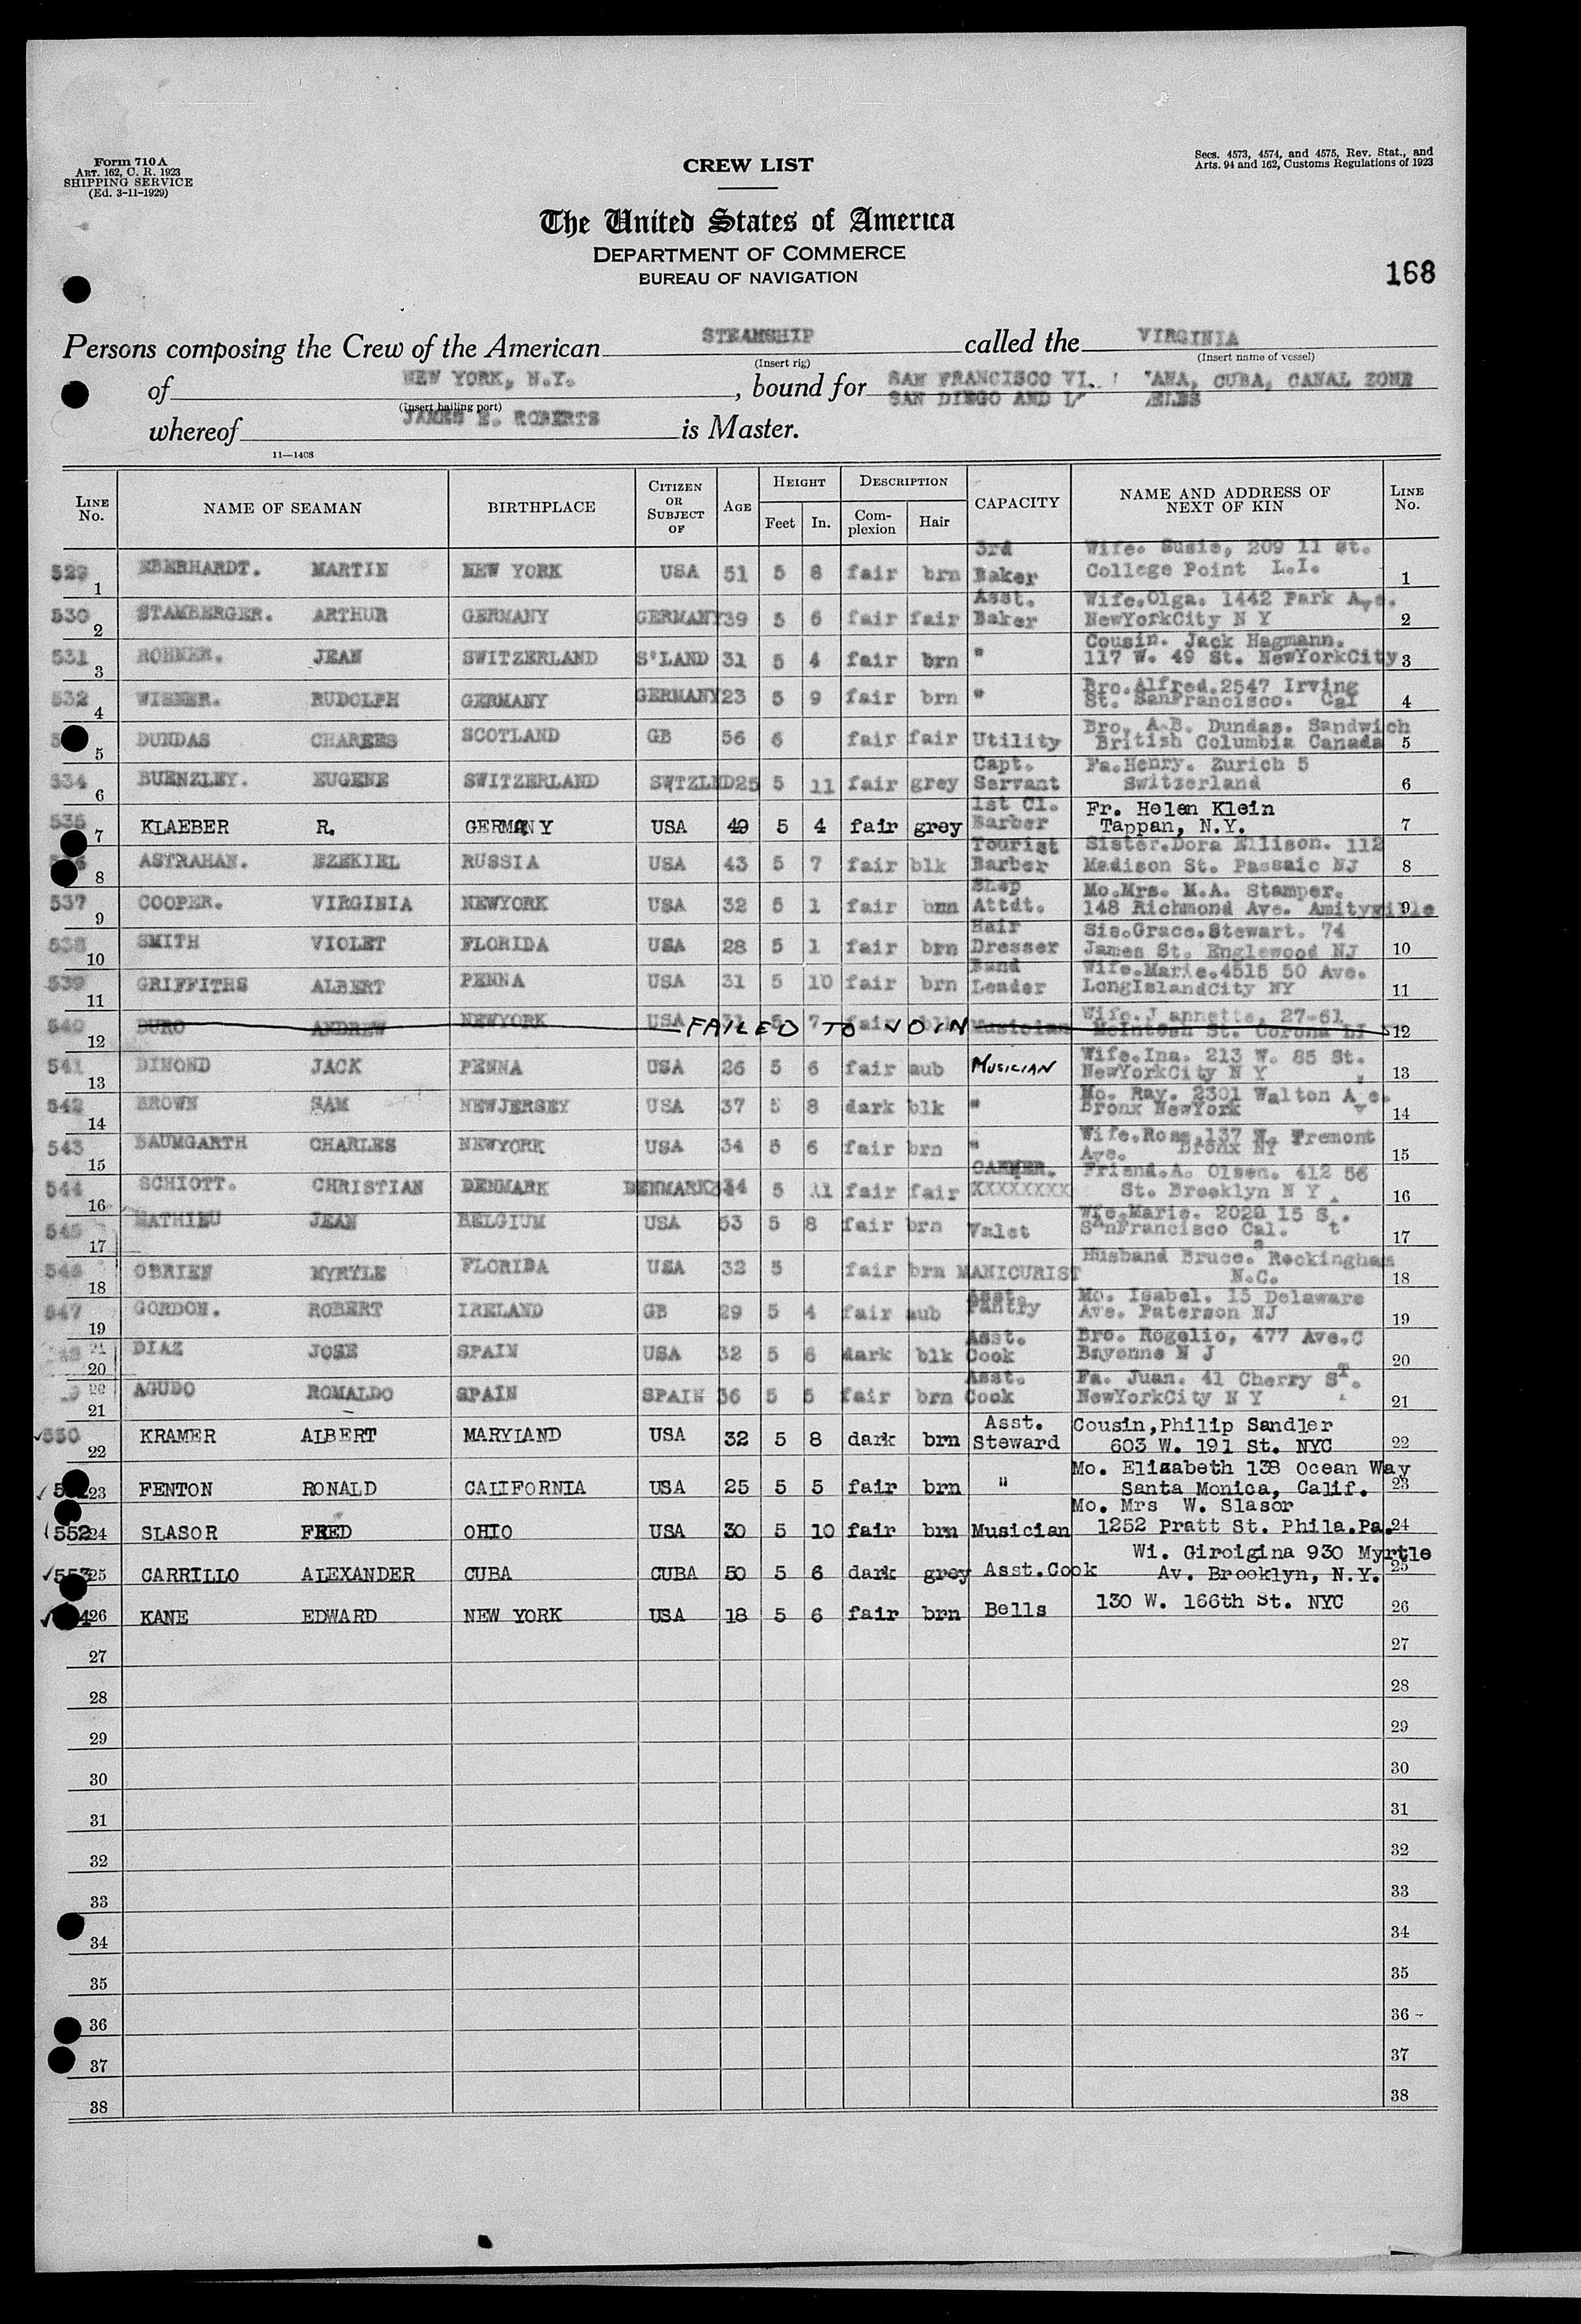 Form 710 A
ART. 162, C. R. 1923
SHIPPING SERVICE
(Ed. 3-11-1929)
Secs. 4573, 4574, and 4575, Rev. Stat., and
Arts. 94 and 162, Customs Regulations of 1923
CREW LIST
The United States of America
DEPARTMENT OF COMMERCE
BUREAU OF NAVIGATION
168
Persons composing the Crew of the American STEAMSHIP called the VIRGINIA
(Insert rig) (Insert name of vessel)
of NEW YORK, N.Y., bound for SAN FRANCISCO CUBA, CANAL ZONE
(insert hailing port) SAN DIEGO AND
whereof JAMES E. ROBERTS is Master.
11—1408
LINE No. NAME OF SEAMAN BIRTHPLACE CITIZEN OR SUBJECT OF AGE HEIGHT Feet In. DESCRIPTION Complexion Hair CAPACITY NAME AND ADDRESS OF NEXT OF KIN LINE No.
529 1 EBERHARDT. MARTIN NEW YORK USA 51 5 8 fair brn 3rd Baker Wife. Susie, 209 11 St. College Point L.I. 1
530 2 STAMBERGER. ARTHUR GERMANY GERMANY 39 5 6 fair fair Asst. Baker Wife.Olga. 1442 Park Ave. NewYorkCity N Y 2
531 3 ROHNER. JEAN SWITZERLAND S'LAND 31 5 4 fair brn " Cousin. Jack Hagmann. 117 W. 49 St. NewYorkCity 3
532 4 WISNER. RUDOLPH GERMANY GERMANY 23 5 9 fair brn " Bro.Alfred.2547 Irving St. SanFrancisco. Cal 4
5 DUNDAS CHARLES SCOTLAND GB 56 6 fair fair Utility Bro. A.B. Dundas. Sandwich British Columbia Canada 5
534 6 BUENZLEY. EUGENE SWITZERLAND SWTZLND 25 5 11 fair grey Capt. Servant Fa.Henry. Zurich 5 Switzerland 6
535 7 KLAEBER R. GERMANY USA 49 5 4 fair grey 1st Cl. Barber Fr. Helen Klein Tappan, N.Y. 7
8 ASTRAHAN. EZEKIEL RUSSIA USA 43 5 7 fair blk Tourist Barber Sister.Dora Ellison. 112 Madison St. Passaic NJ 8
537 9 COOPER. VIRGINIA NEWYORK USA 32 5 1 fair brn Shop Attdt. Mo.Mrs. M.A. Stamper. 148 Richmond Ave. Amityville 9
538 10 SMITH VIOLET FLORIDA USA 28 5 1 fair brn Hair Dresser Sis.Grace.Stewart. 74 James St. Englewood NJ 10
539 11 GRIFFITHS ALBERT PENNA USA 31 5 10 fair brn Band Leader Wife.Marie.4515 50 Ave. LongIslandCity NY 11
540 12 DURO ANDREW NEWYORK USA 31 5 7 fair blk FAILED TO JOIN Musician Wife.J annette, 27-61 McIntosh St. Corona LI 12
541 13 DIMOND JACK PENNA USA 26 5 6 fair aub MUSICIAN Wife.Ina. 213 W. 85 St. NewYorkCity N Y 13
542 14 BROWN SAM NEWJERSEY USA 37 5 8 dark blk " Mo. Ray. 2301 Walton Ave. Bronx NewYork 14
543 15 BAUMGARTH CHARLES NEWYORK USA 34 5 6 fair brn " Wife.Rose.137 W. Tremont Ave. Bronx NY 15
544 16 SCHIOTT. CHRISTIAN DENMARK DENMARK 34 5 11 fair fair XXXXXXXX Friend.A. Olsen. 412 56 St. Brooklyn N Y 16
545 17 MATHIEU JEAN BELGIUM USA 53 5 8 fair brn Valet Wfe.Marie. 2020 15 St. SanFrancisco Cal. 17
546 18 OBRIEN MYRTLE FLORIDA USA 32 5 fair brn MANICURIST Husband Bruce. Rockingham N.C. 18
547 19 GORDON. ROBERT IRELAND GB 29 5 4 fair aub Asst. Pantry Mo. Isabel. 15 Delaware Ave. Paterson NJ 19
21 20 DIAZ JOSE SPAIN USA 32 5 6 dark blk Asst. Cook Bro. Rogelio, 477 Ave.C Bayonne N J 20
20 21 AGUDO ROMALDO SPAIN SPAIN 36 5 5 fair brn Asst. Cook Fa. Juan. 41 Cherry ST. NewYorkCity N Y 21
550 22 KRAMER ALBERT MARYLAND USA 32 5 8 dark brn Asst. Steward Cousin,Philip Sandler 603 W. 191 St. NYC 22
23 FENTON RONALD CALIFORNIA USA 25 5 5 fair brn " Mo. Elizabeth 138 Ocean Way Santa Monica, Calif. 23
552 24 SLASOR FRED OHIO USA 30 5 10 fair brn Musician Mo. Mrs W. Slasor 1252 Pratt St. Phila.Pa. 24
553 25 CARRILLO ALEXANDER CUBA CUBA 50 5 6 dark grey Asst.Cook Wi. Giroigina 930 Myrtle Av. Brooklyn, N.Y. 25
26 KANE EDWARD NEW YORK USA 18 5 6 fair brn Bells 130 W. 166th St. NYC 26
27 27
28 28
29 29
30 30
31 31
32 32
33 33
34 34
35 35
36 36
37 37
38 38